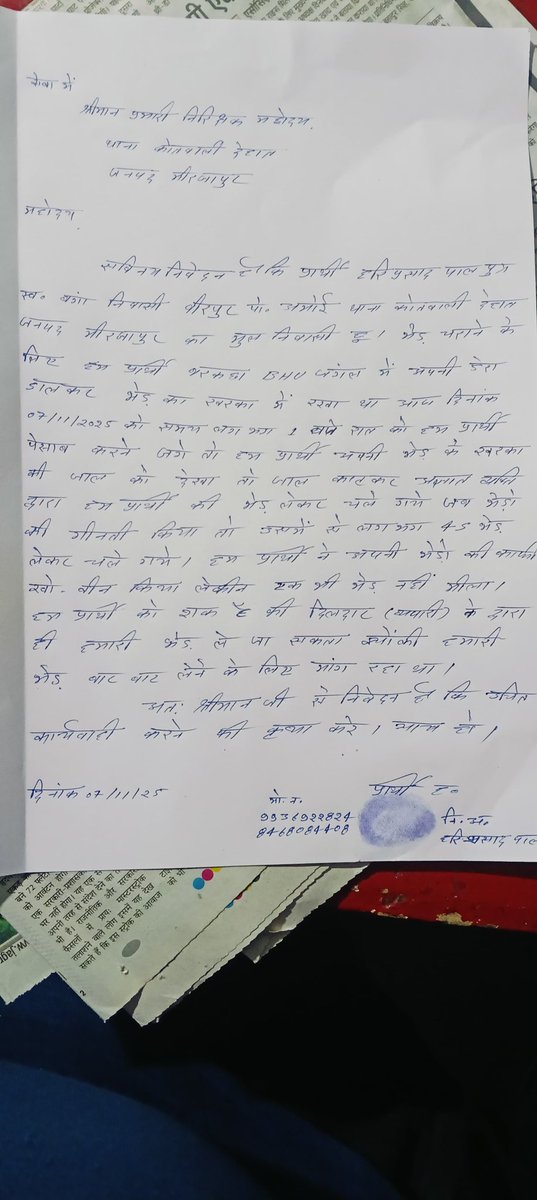 सेवा में
श्रीमान प्रभारी निरिक्षक महोदय.
थाना कोतवाली देहात
जनपद मीरजापुर
महोदय,
सविनय निवेदन है कि प्रार्थी हरिप्रसाद पाल पुत्र
स्व. बंगा निवासी वीरपुर पो. अमोई थाना कोतवाली देहात
जनपद मीरजापुर का मुल निवासी हू। भेड़ चराने के
लिए हम प्रार्थी बरकछा BHU जंगल में अपनी डेरा
डालकर भेड़ का खरका में रखा था आज दिनांक
07/11/2025 को समय लगभग 1 बजे रात को हम प्रार्थी
पेसाब करने जगे तो हम प्रार्थी अपनी भेड़ के खरका
की जाल को देखा तो जाल काटकर अज्ञात व्यक्ति
द्वारा हम प्रार्थी की भेड़ लेकर चले गये जब भेड़ो
की गीनती किया तो उसमें से लगभग 45 भेड़
लेकर चले गये। हम प्रार्थी ने अपनी भेड़ो की काफी
खो. बीन किया लेकीन एक भी भेड़ नहीं मीला।
हम प्रार्थी को शक है की दिलदार (व्यापारी) के द्वारा
ही हमारी भेड़ ले जा सकता क्योंकी हमारी
भेड़ बार बार लेने के लिए मांग रहा था।
अतः श्रीमान जी से निवेदन है कि उचित
कार्यवाही करने की कृपा करे।
दिनांक 07/11/25
प्रार्थी ह०
मो. न.
9936922824
8468084408
नि. अ.
हरिप्रसाद पाल